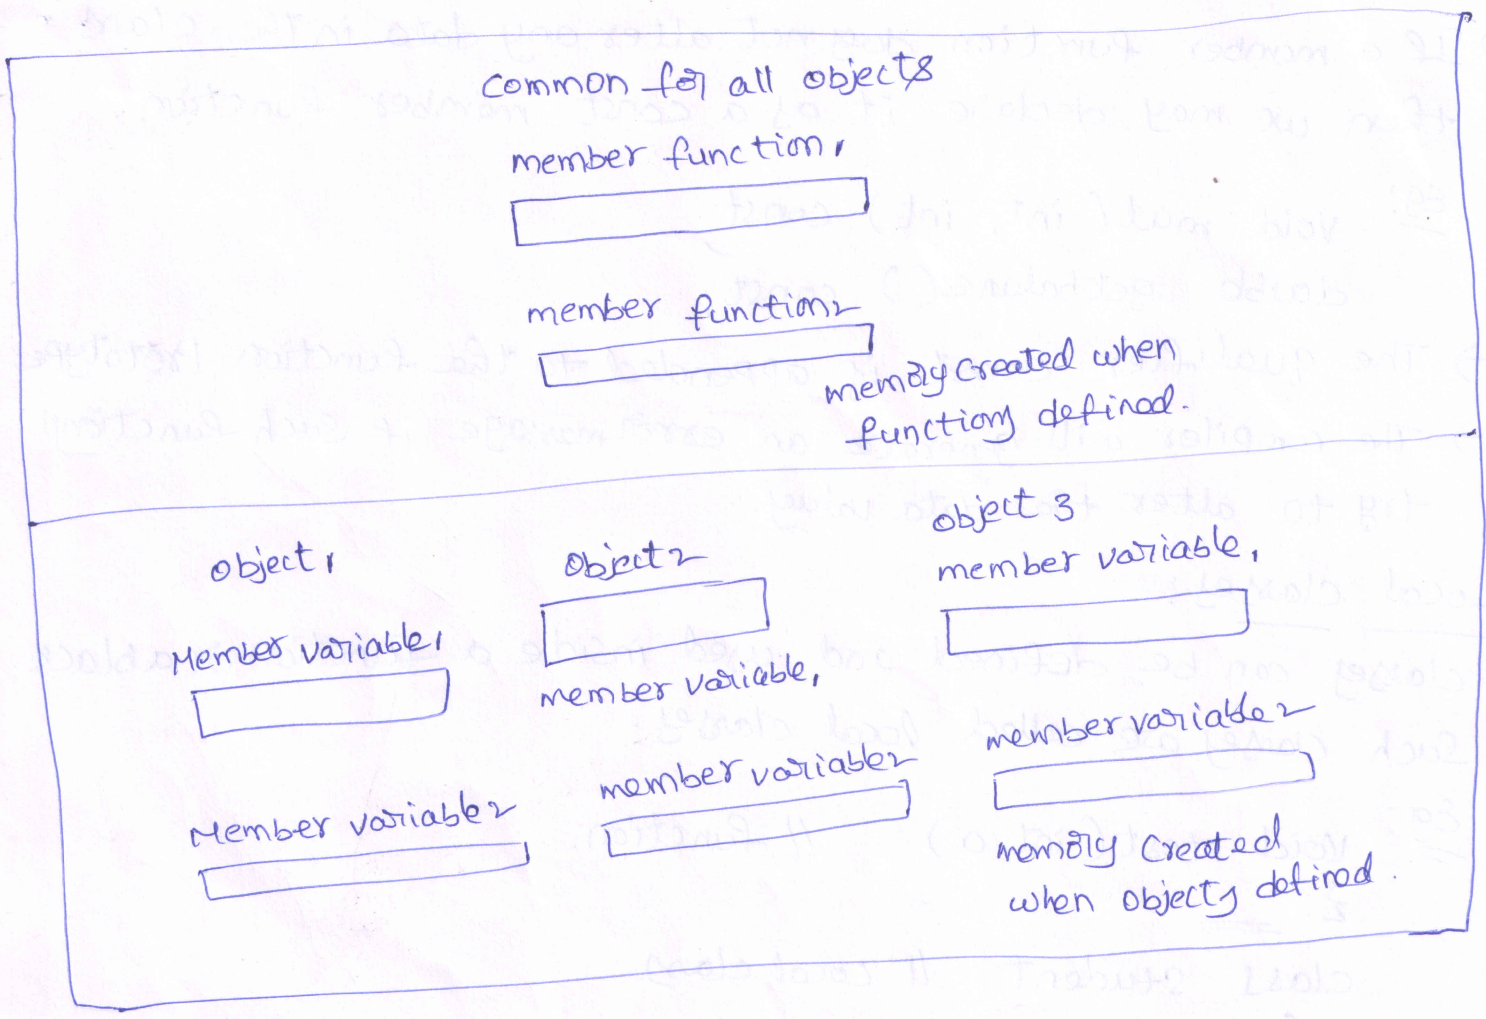 common for all objects
member function1
member function2
memory created when
functions defined.
object1
Member variable1
Member variable2
Object2
member variable1
member variable2
object 3
member variable1
member variable2
memory created
when objects defined.